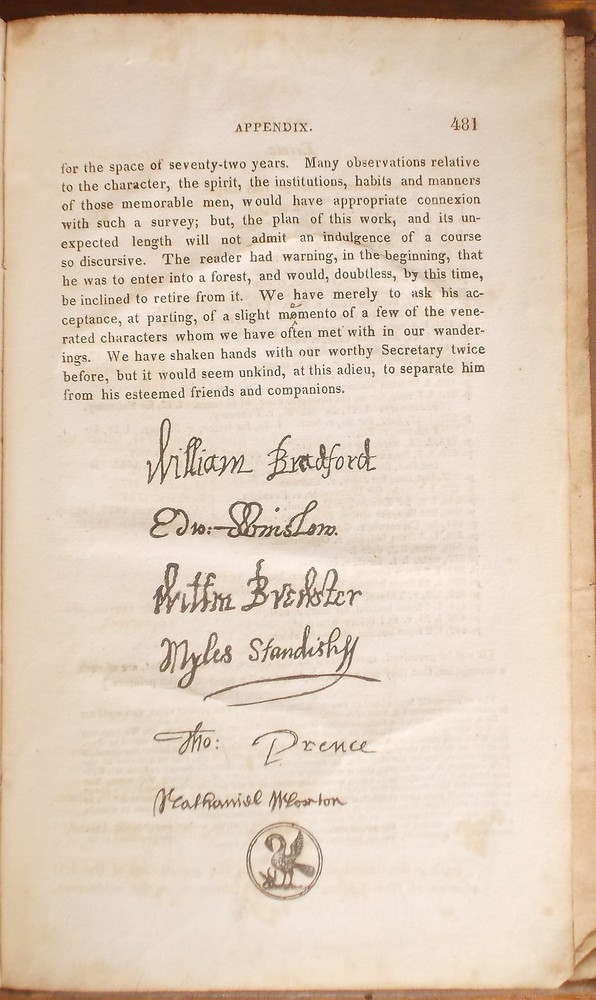 APPENDIX. 481
for the space of seventy-two years. Many observations relative
to the character, the spirit, the institutions, habits and manners
of those memorable men, would have appropriate connexion
with such a survey; but, the plan of this work, and its un-
expected length will not admit an indulgence of a course
so discursive. The reader had warning, in the beginning, that
he was to enter into a forest, and would, doubtless, by this time,
be inclined to retire from it. We have merely to ask his ac-
ceptance, at parting, of a slight memento of a few of the vene-
rated characters whom we have often met with in our wander-
ings. We have shaken hands with our worthy Secretary twice
before, but it would seem unkind, at this adieu, to separate him
from his esteemed friends and companions.
William Bradford
Edw: Winslow.
Willm Brewster
Myles Standish
Tho: Prence
Nathaniel Morton